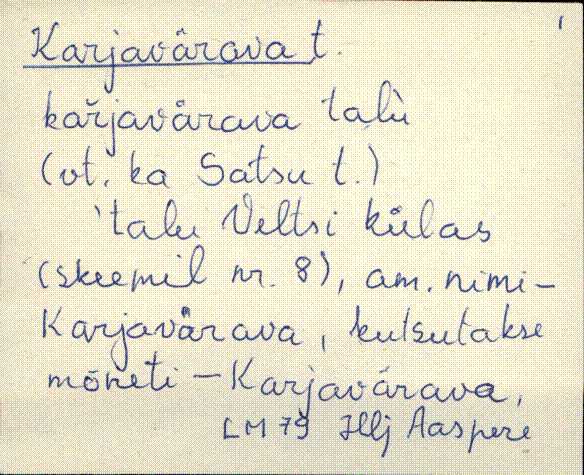 1
Karjavärava t.
kařjavärava talù
(vt. ka Satsu t.)
'talu Veltsi külas
(skeemil nr. 8), am. nimi-
Karjavärava, kutsutakse
mõneti – Karjavärava,
LM 79 Illj Aaspere